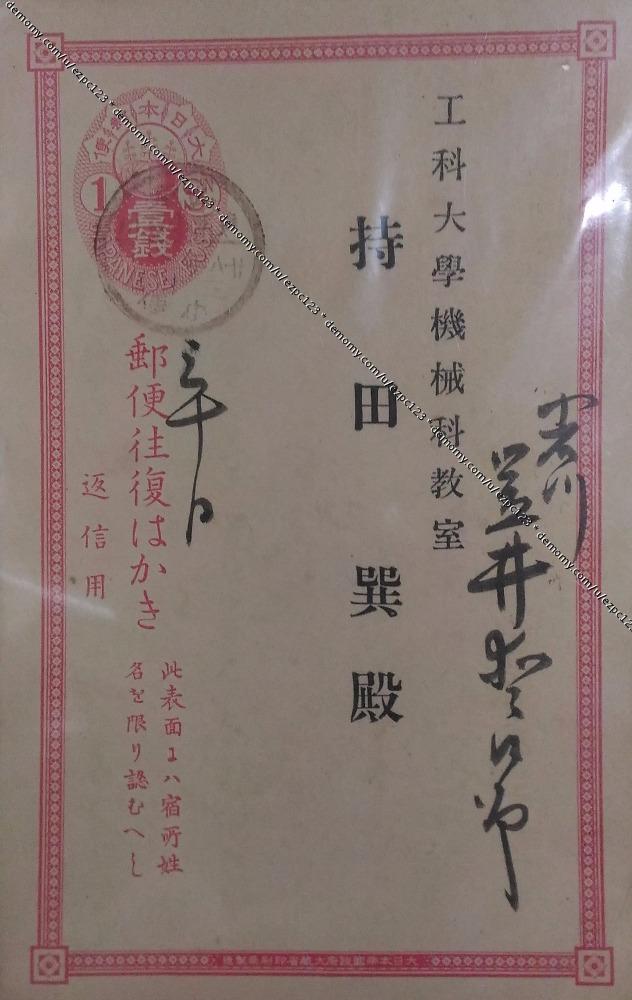 工科大學機械科教室
持田 巽殿
三十日
郵便往復はかき
返信用
此表面にハ宿所姓
名を限り認むへし
大日本郵便
壹錢
1
JAPANESE
大日本帝國政府大藏省印刷局製造
demomy.com/u/ezpc123 * demomy.com/u/ezpc123 * demomy.com/u/ezpc123 * demomy.com/u/ezpc123 * demomy.com/u/ezpc123